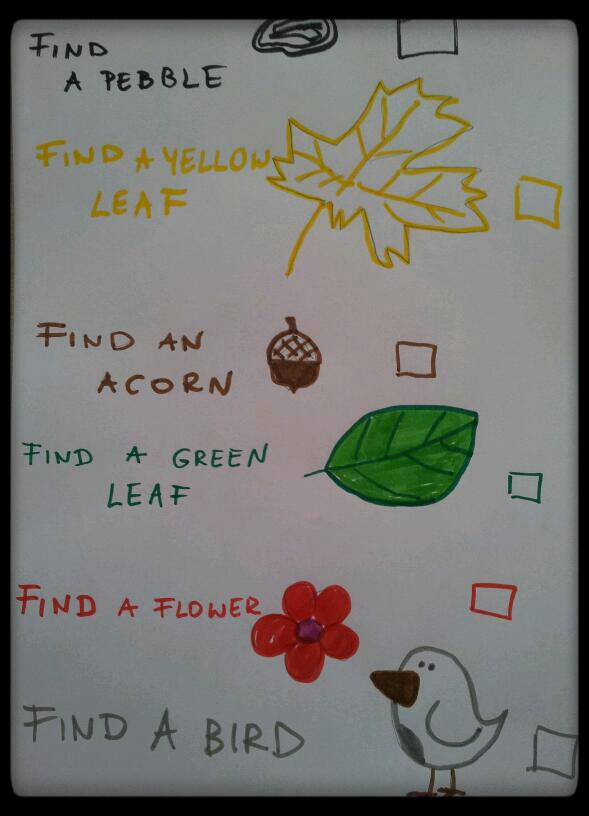 FIND
A PEBBLE
FIND A YELLOW
LEAF
FIND AN
ACORN
FIND A GREEN
LEAF
FIND A FLOWER
FIND A BIRD